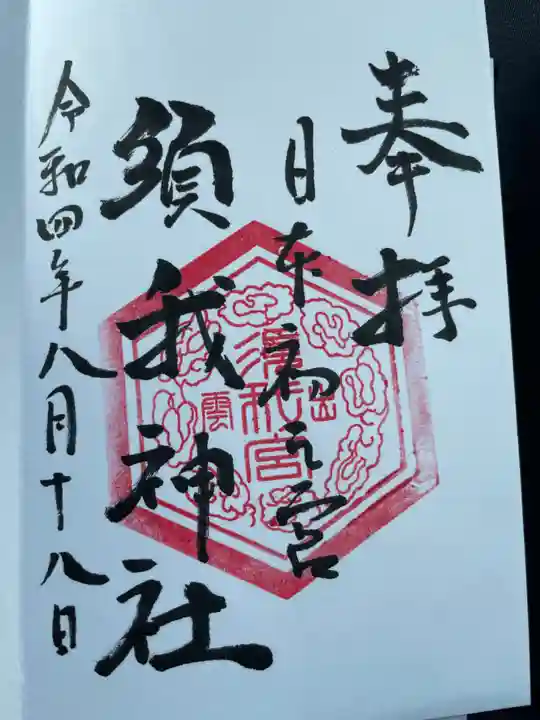 奉拝
日本初之宮
須我神社
令和四年八月十八日
須我宮
出雲